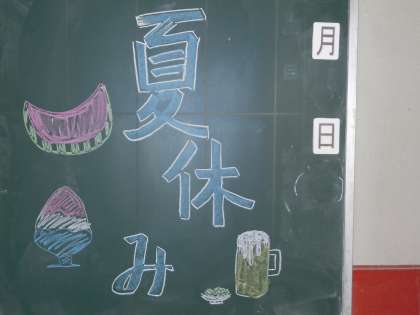 夏休み
月
日